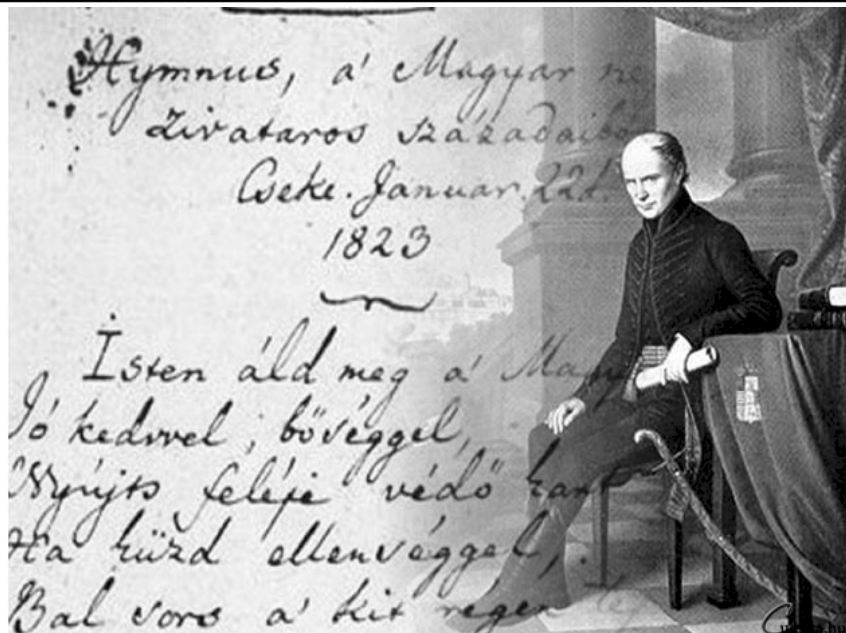 Hymnus, a' Magyar ne
Zivataros századaibó
Cseke. Januar. 22d.
1823
Isten áld meg a' Magy
Jó kedvvel, bőséggel,
Nyújts feléje védő kart
Ha küzd ellenséggel,
Bal sors a' kit régen